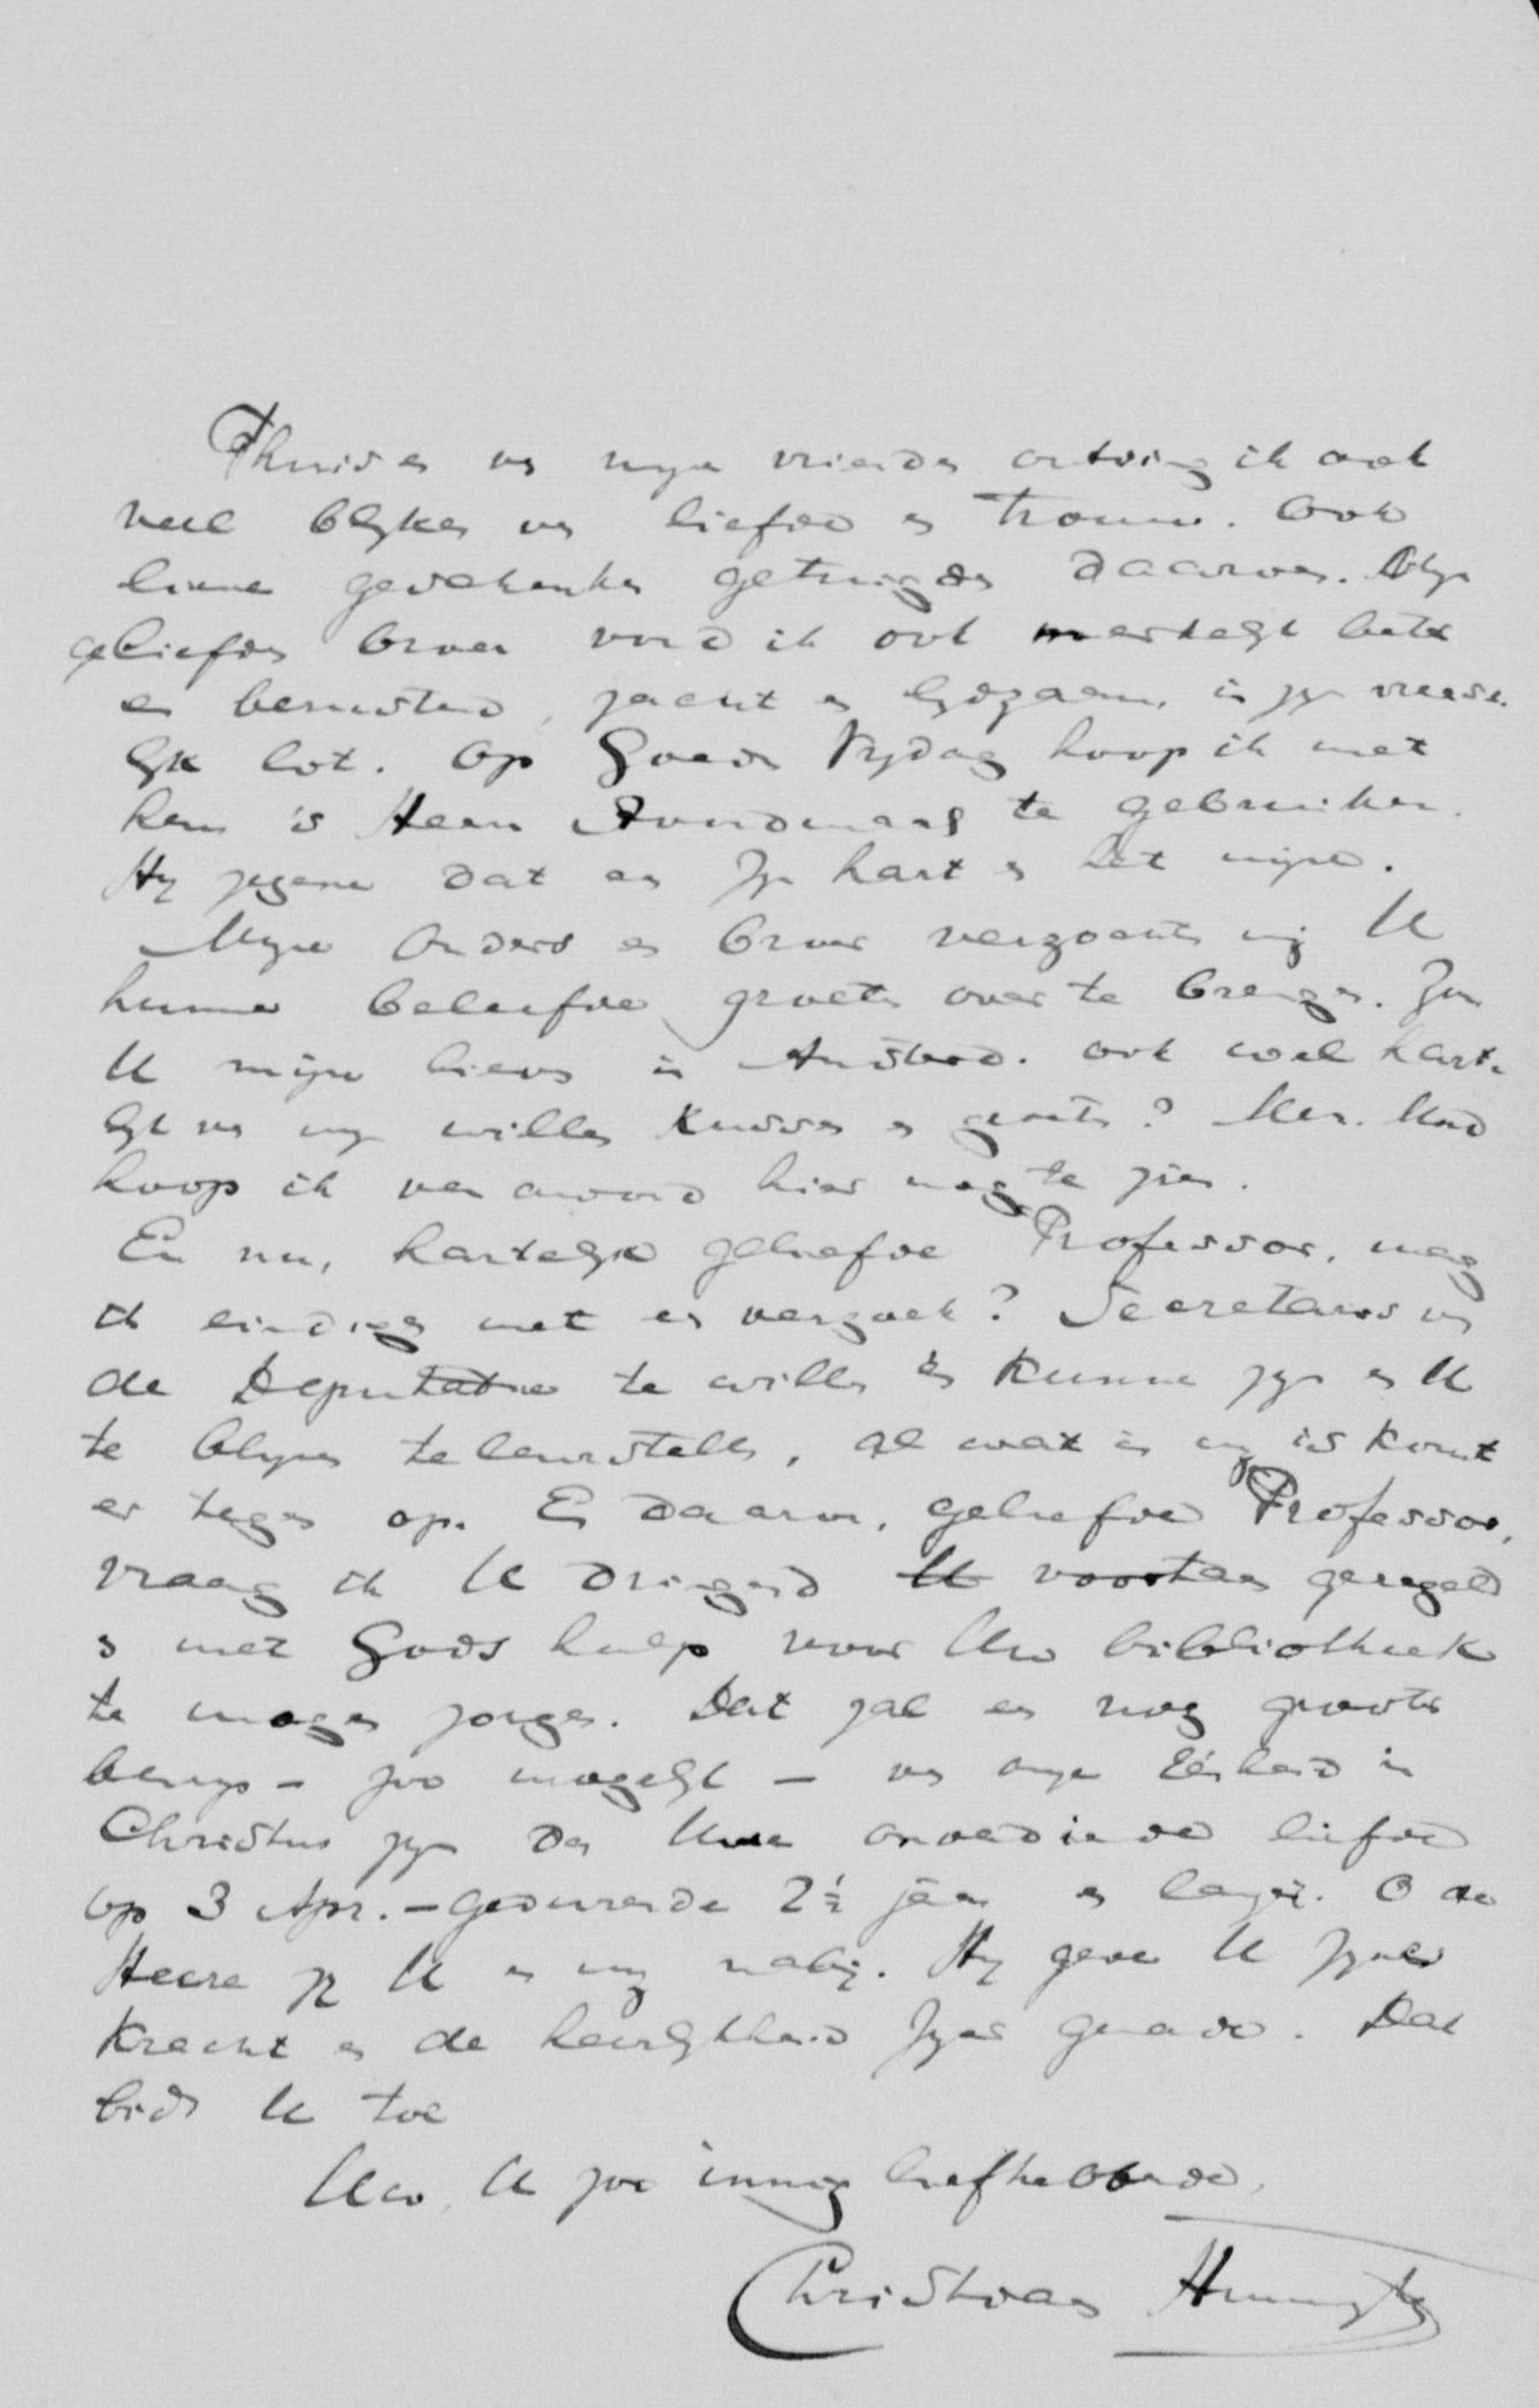 Thuis en van mijne vrienden ontving ik ook
veel blijken van liefde en trouw. Ook
lieve geschenken getuigden daarvan. Mijn
geliefden broer vond ik ook merkelijk beter
en berustend, zacht en lijdzaam, in zijn vreese-
lijk lot. Op Goeden Vrijdag hoop ik met
hem 's Heeren Avondmaal te gebruiken.
Hij zegene dat aan zijn hart en het mijne.
Mijne Ouders en broer verzoeken mij U
hunne beleefde groeten over te brengen. Zou
U mijne lievs in Amsterd. ook wel harte-
lijk van mij willen kussen en groeten?
hoop ik van avond hier nog te zien.
En nu, hartelijk geliefde Professor, mag
ik eindigen met een verzoek? Secretaris van
de Deputatie te willen en kunnen zijn en U
te blijven teleurstellen, al wat in mij is komt
er tegen op. En daarom, geliefde Professor,
vraag ik U dringend U voortaan geregeld
en met Gods hulp voor Uw bibliotheek
te mogen zorgen. Dat zal een nog grooter
bewijs - zoo mogelijk - van onze Eénheid in
Christus zijn dan Uwe onverdiende liefde
op 3 Apr. - gedurende 2½ jaar en langer. O de
Heere zij U en mij nabij. Hij geve U Zijne
kracht en de heerlijkheid Zijner genade. Dat
bidt U toe
Uw, U zoo innig liefhebbende,
Christiaan